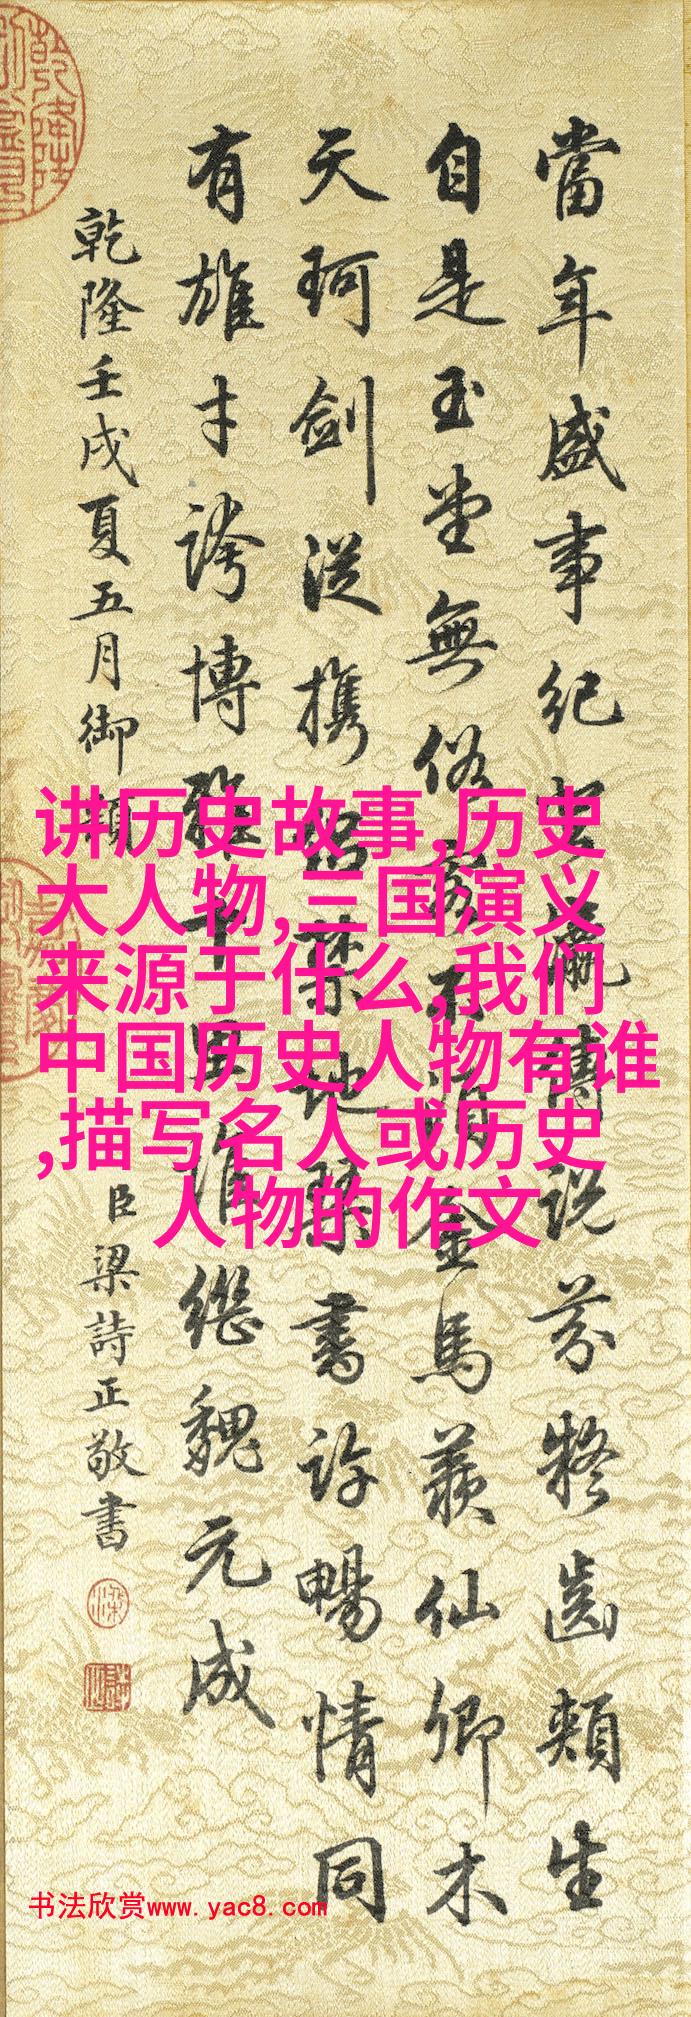 當年盛事紀瀛傳說芬齒頰生
自是玉堂無俗客金馬羨仙卿木
天珂劍從攜禁地琴書許暢情同
有雄才誇博雅誰繼魏元成
乾隆壬戌夏五月御題
臣梁詩正敬書
讲历史故事,历史
大人物,三国演义
来源于什么,我们
中国历史人物有谁
,描写名人或历史
人物的作文
书法欣赏www.yac8.com